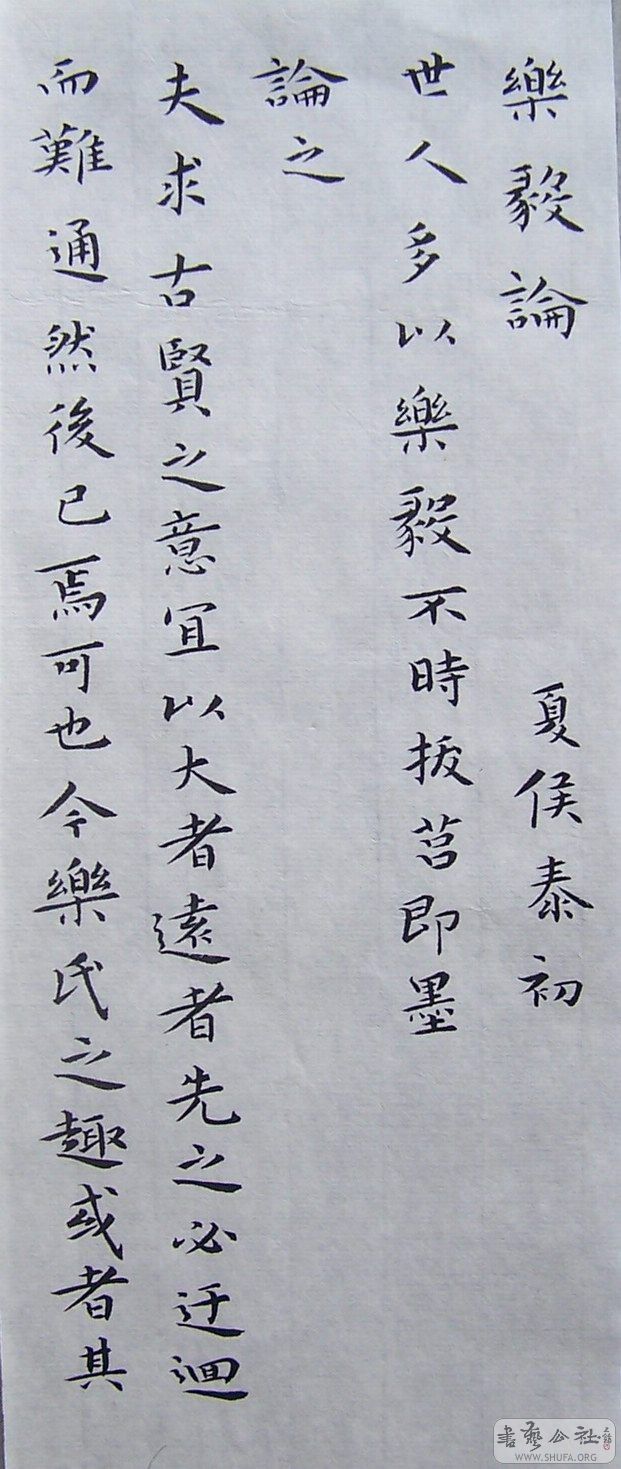 樂毅論 夏侯泰初
世人多以樂毅不時拔莒即墨
論之
夫求古賢之意宜以大者遠者先之必迂迴
而難通然後已焉可也今樂氏之趣或者其
書藝公社
WWW.SHUFA.ORG